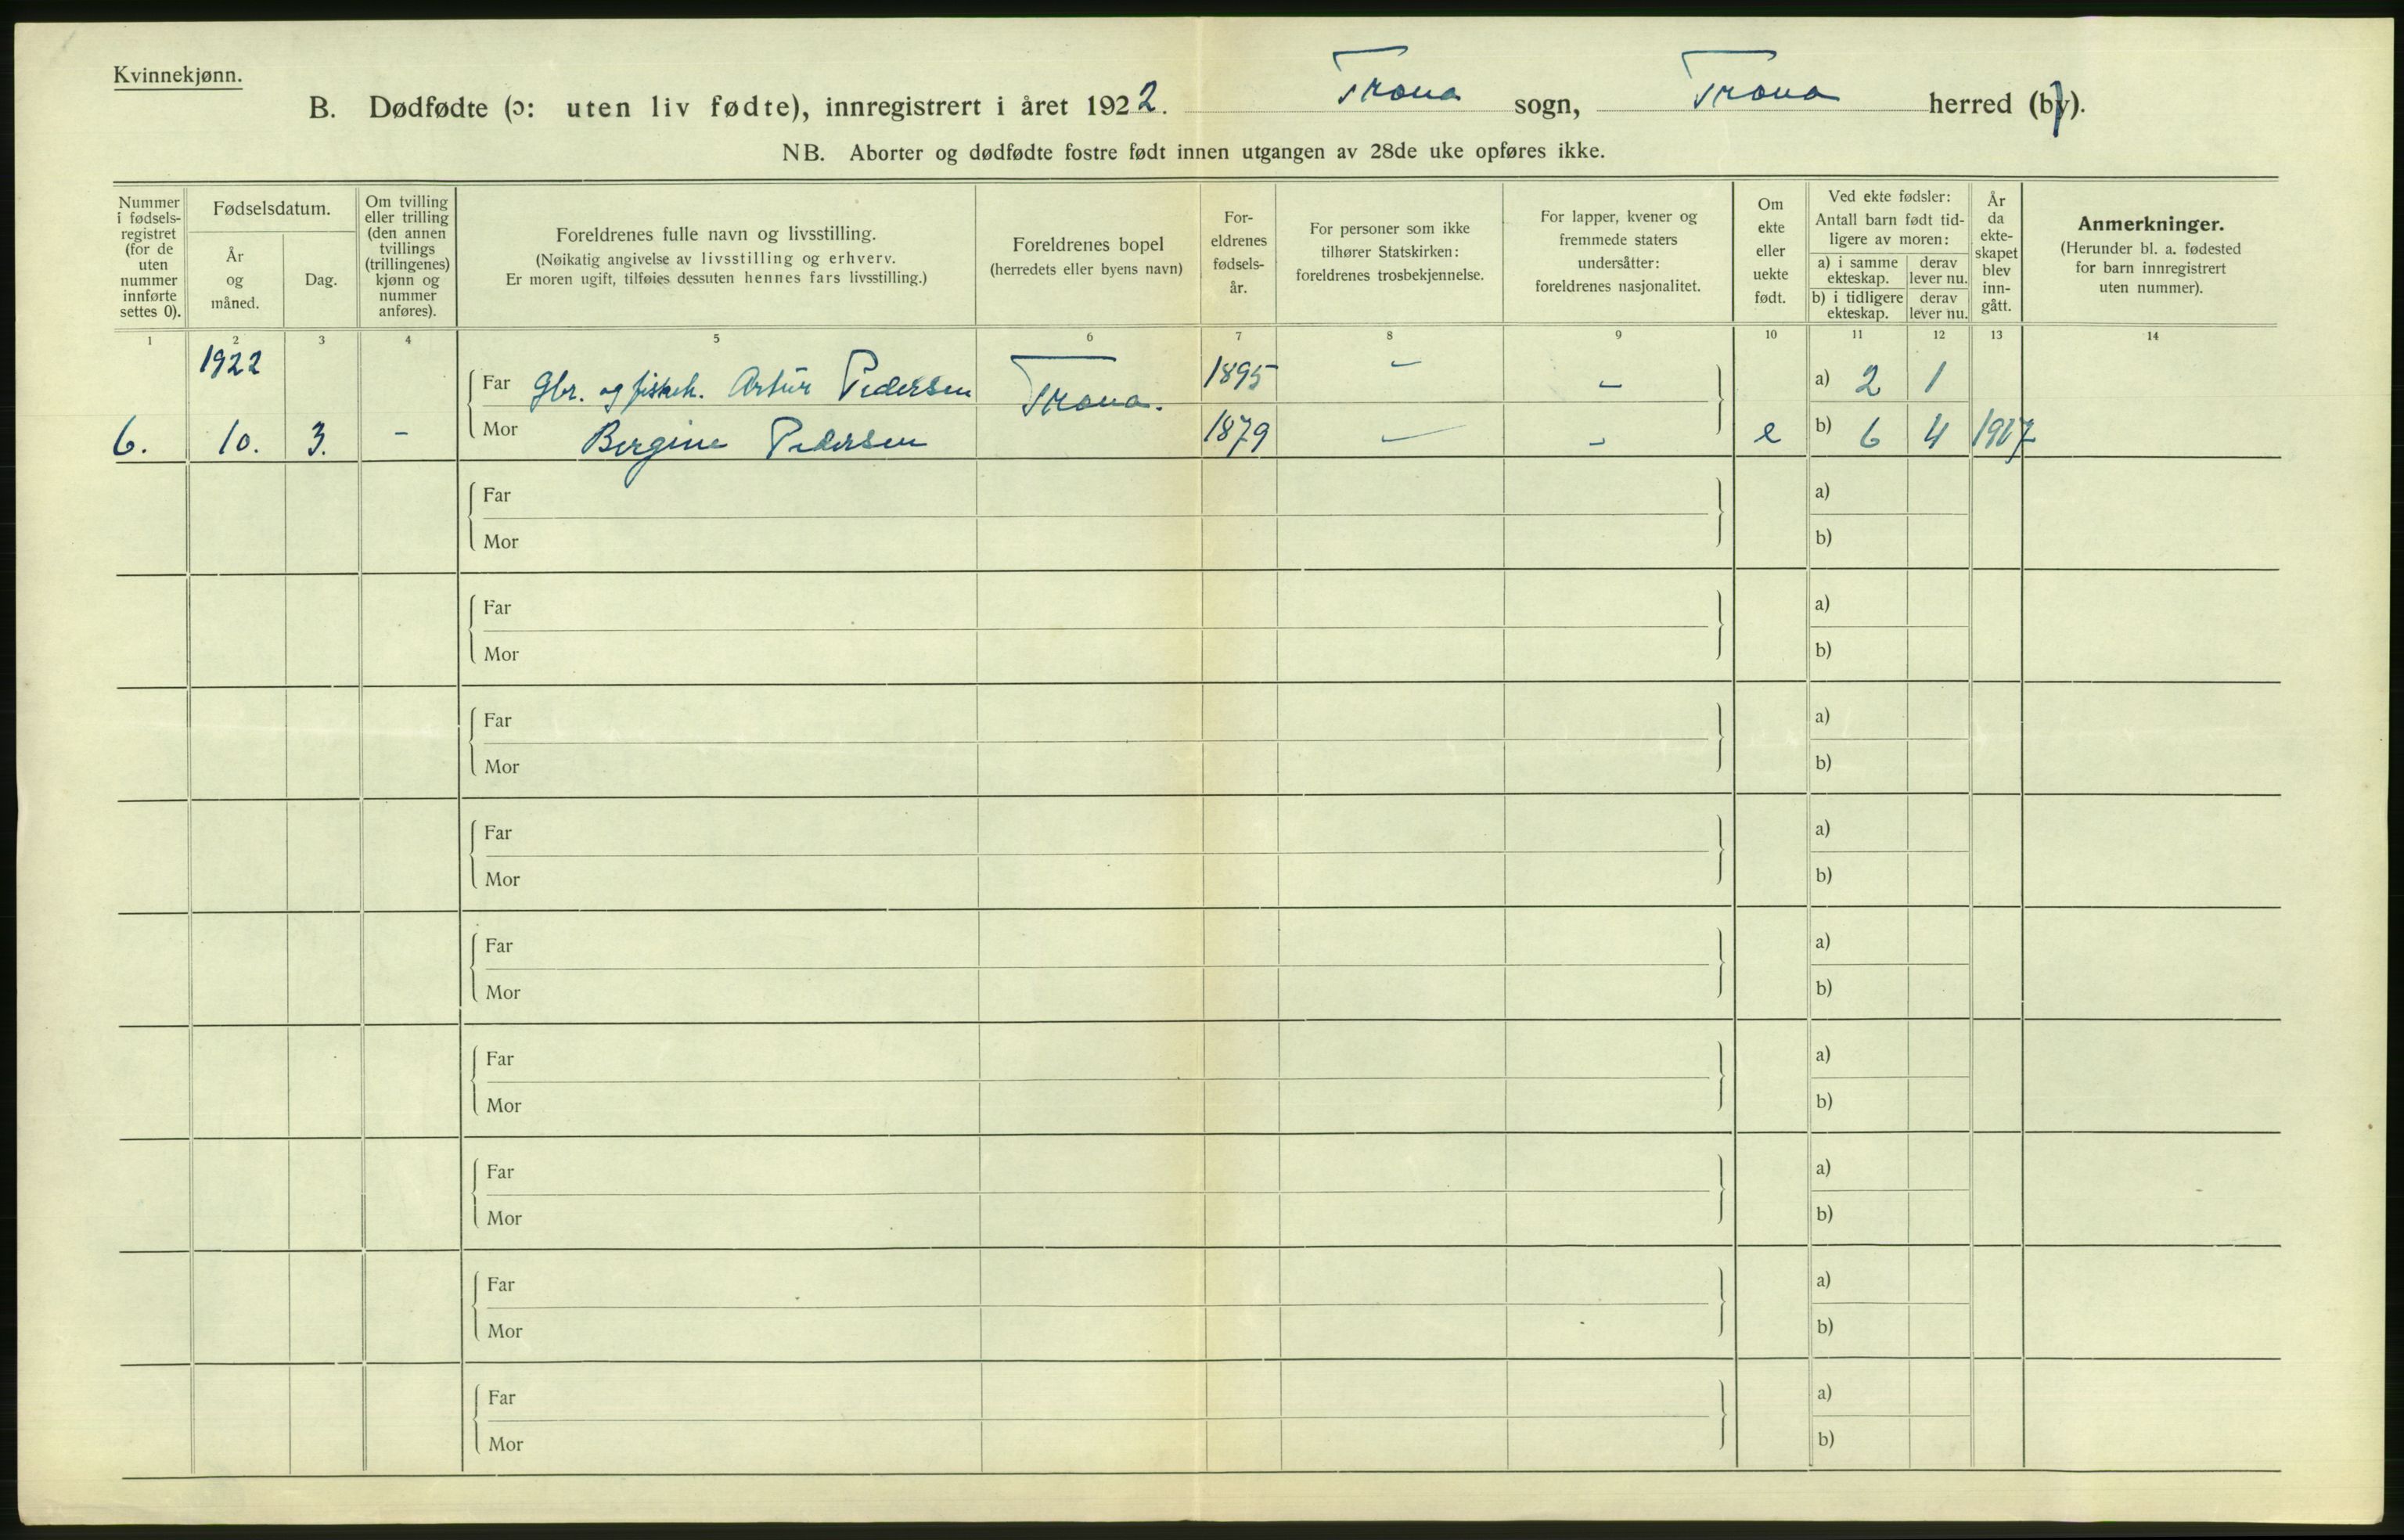 Kvinnekjønn.
B. Dødfødte (ɔ: uten liv fødte), innregistrert i året 1922. Træna sogn, Træna herred (by).
NB. Aborter og dødfødte fostre født innen utgangen av 28de uke opføres ikke.
Nummer i fødsels-registret (for de uten nummer innførte settes 0).
Fødselsdatum.
År og måned.
Dag.
Om tvilling eller trilling (den annen tvillings (trillingenes) kjønn og nummer anføres).
Foreldrenes fulle navn og livsstilling.
(Nøikatig angivelse av livsstilling og erhverv.
Er moren ugift, tilføies dessuten hennes fars livsstilling.)
Foreldrenes bopel
(herredets eller byens navn)
For-eldrenes fødsels-år.
For personer som ikke tilhører Statskirken: foreldrenes trosbekjennelse.
For lapper, kvener og fremmede staters undersåtter: foreldrenes nasjonalitet.
Om ekte eller uekte født.
Ved ekte fødsler:
Antall barn født tid-ligere av moren:
a) i samme ekteskap.
derav lever nu.
b) i tidligere ekteskap.
derav lever nu.
År da ekte-skapet blev inn-gått.
Anmerkninger.
(Herunder bl. a. fødested for barn innregistrert uten nummer).
1 2 3 4 5 6 7 8 9 10 11 12 13 14
1922
Far Gbr. og Artur Pedersen Træna. 1895 – – a) 2 1
6. 10. 3. – Mor Bergine Pedersen 1879 – – e b) 6 4 1917
Far a)
Mor b)
Far a)
Mor b)
Far a)
Mor b)
Far a)
Mor b)
Far a)
Mor b)
Far a)
Mor b)
Far a)
Mor b)
Far a)
Mor b)
Far a)
Mor b)